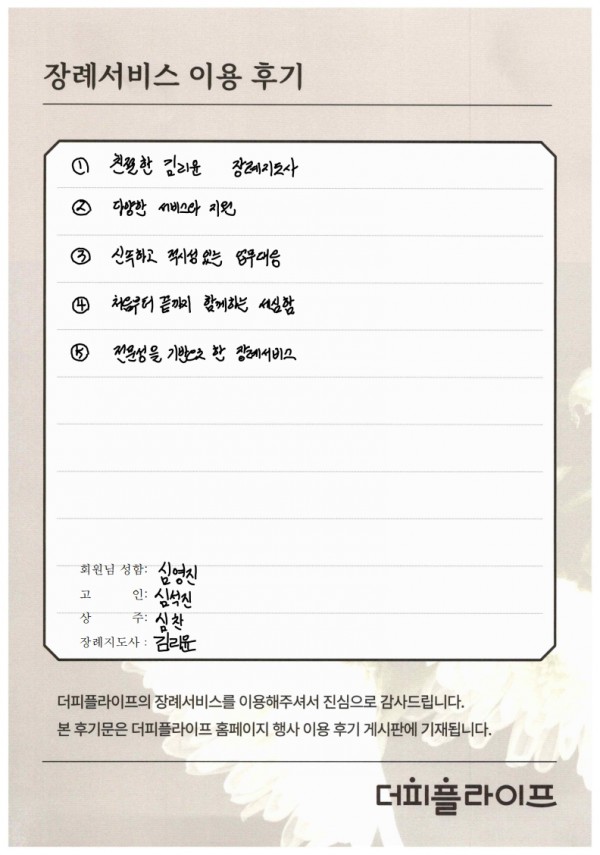 장례서비스 이용 후기
① 친절한 김리윤 장례지도사
② 다양한 서비스와 지원
③ 신속하고 적시성 있는 업무대응
④ 처음부터 끝까지 함께하는 세심함
⑤ 전문성을 기반으로 한 장례서비스
회원님 성함: 심영진
고 인: 심석진
상 주: 심찬
장례지도사 : 김리윤
더피플라이프의 장례서비스를 이용해주셔서 진심으로 감사드립니다.
본 후기문은 더피플라이프 홈페이지 행사 이용 후기 게시판에 기재됩니다.
더피플라이프